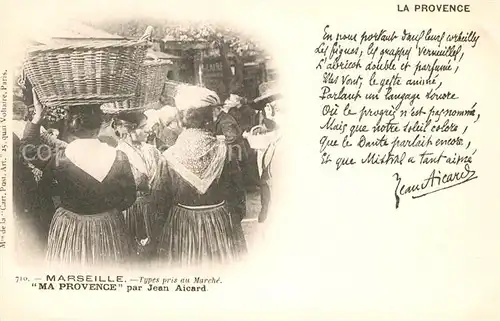 LA PROVENCE
En nous portant dans leurs corbeilles
Les figues, les grappes vermeilles,
L'abricot double et parfumé,
Elles vont, le geste animé,
Parlant un langage sonore
Où le progrès n'est pas nommé,
Mais que notre soleil colore,
Que le Dante parlait encore
Et que Mistral a tant aimé
Jean Aicard
710. – MARSEILLE. – Types pris au Marché.
"MA PROVENCE" par Jean Aicard
Mon de la "Cart. Post. Art." 25, quai Voltaire, Paris.